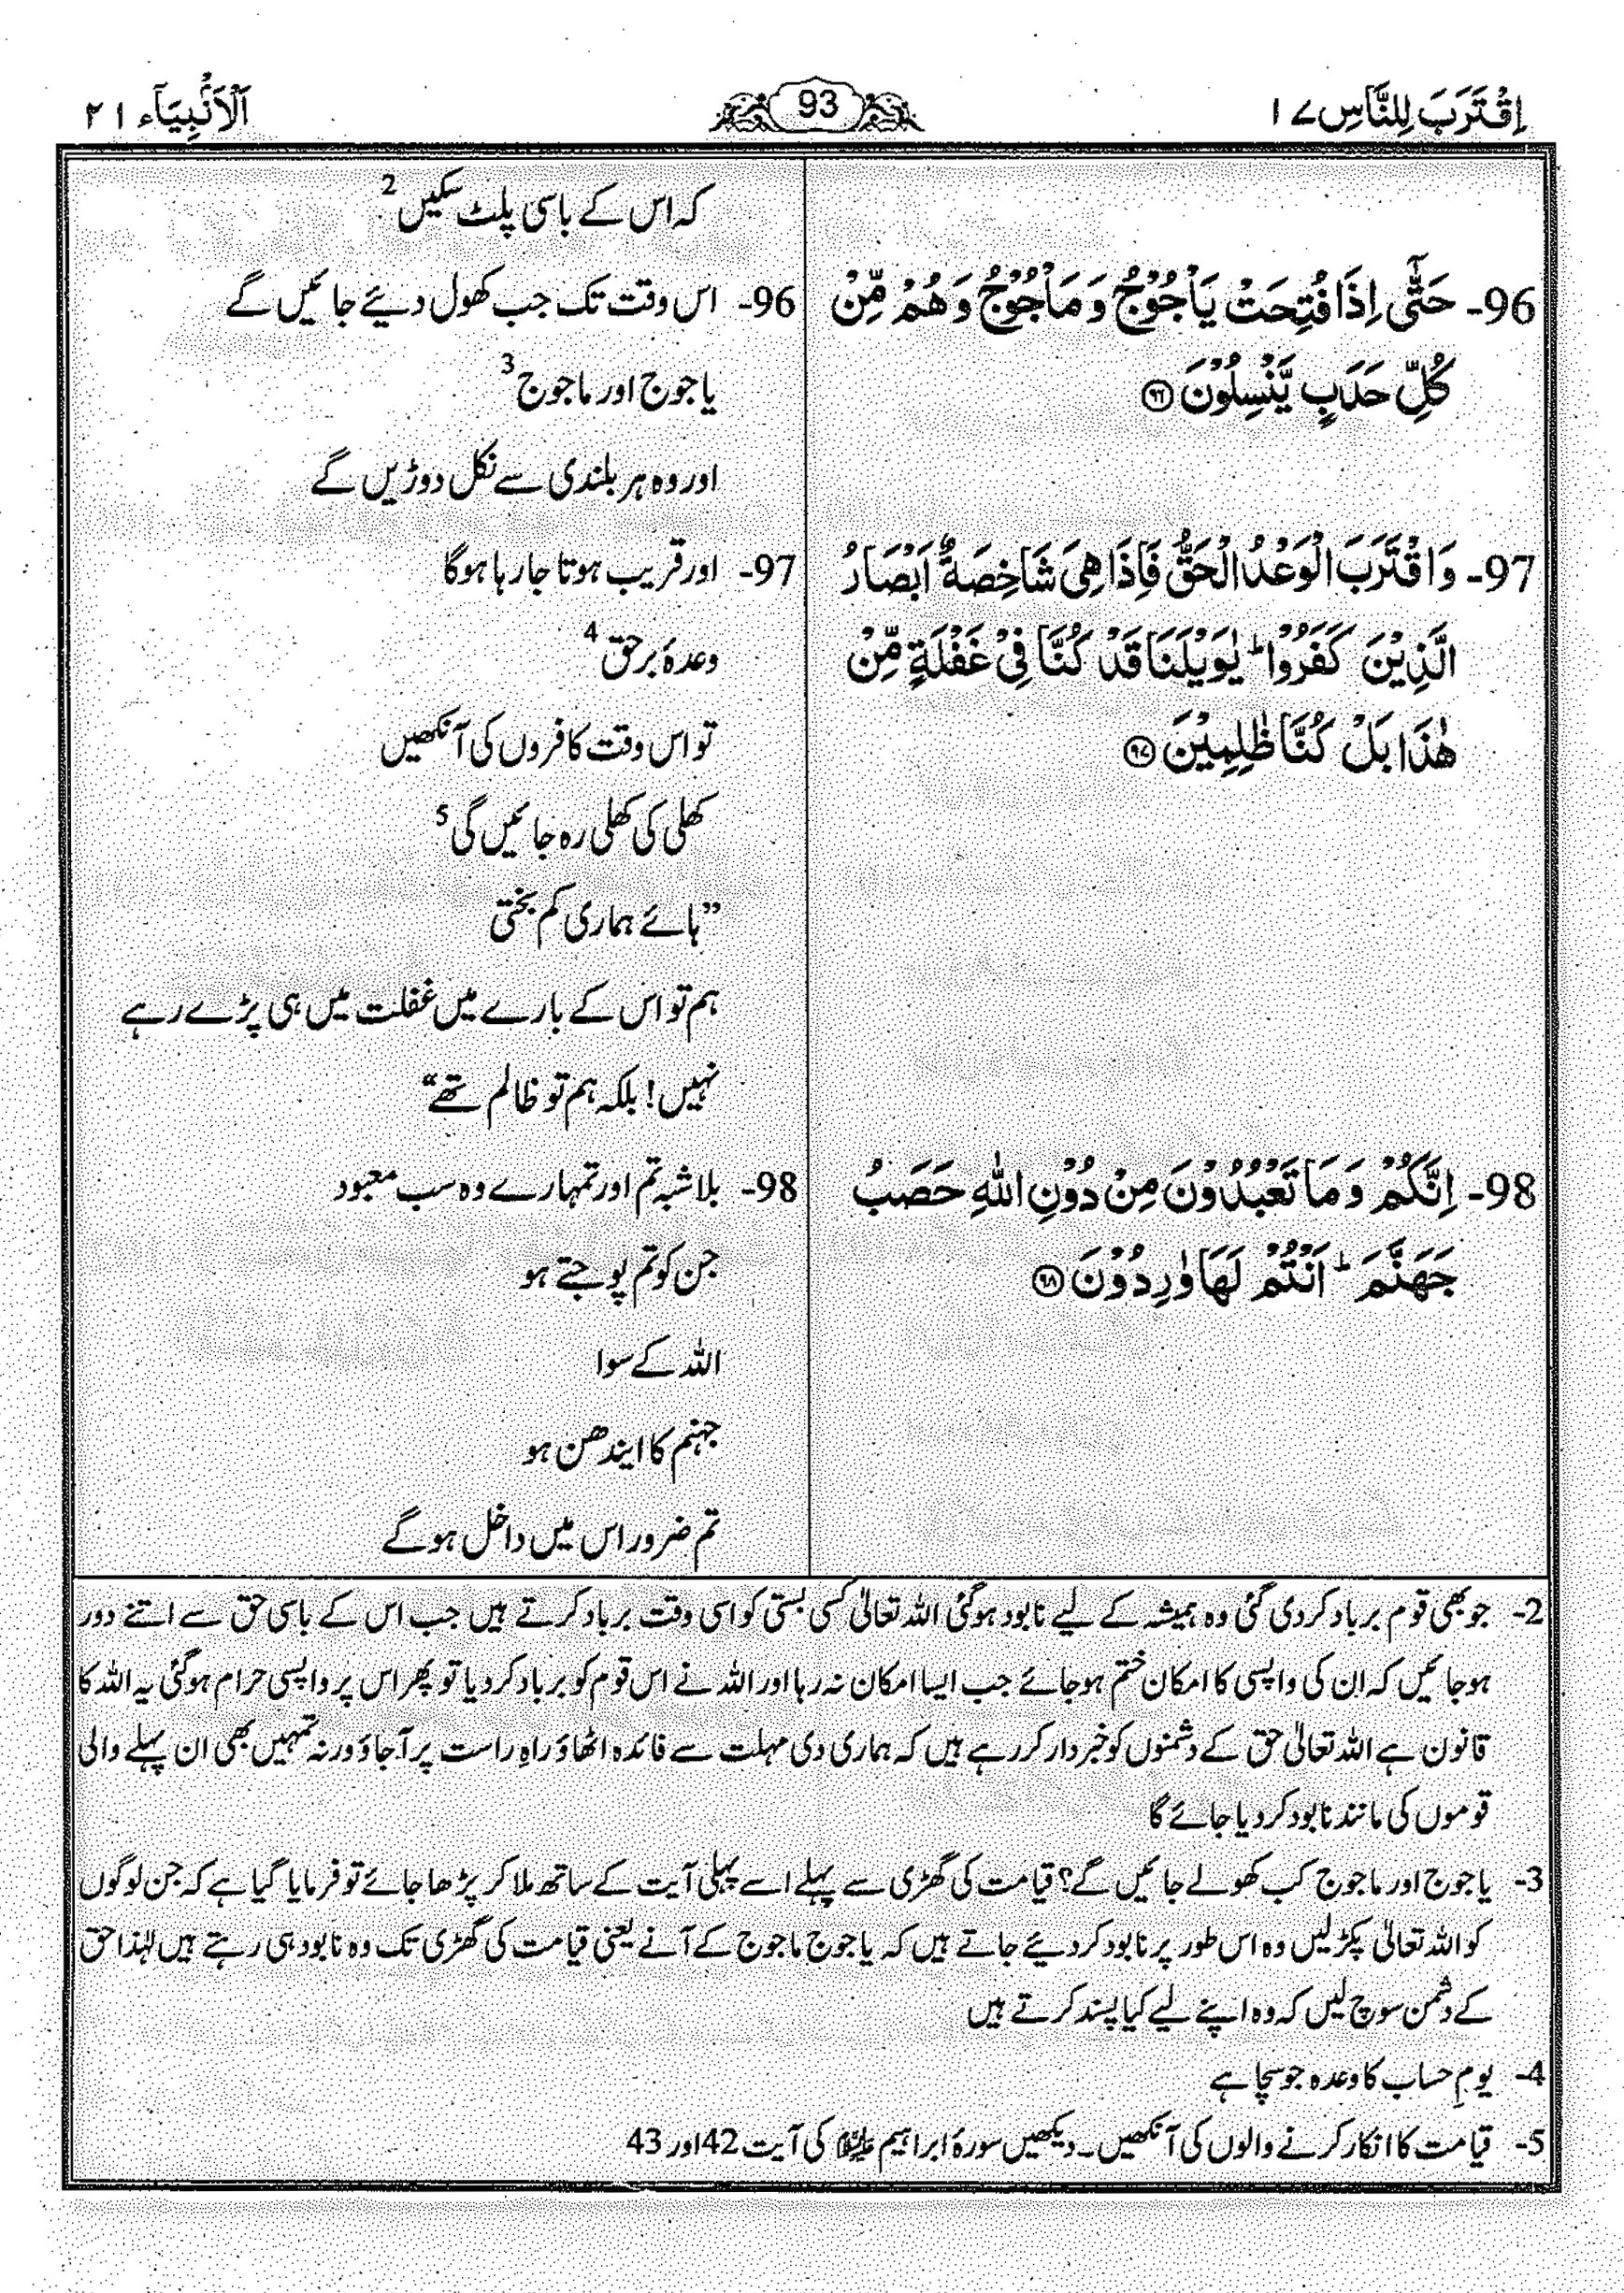 اِقْتَرَبَ لِلنَّاسِ ۱۷
93
اَلْاَنْۢبِيَآء ۲۱
کہ اس کے باسی پلٹ سکیں 2
96- حَتّٰۤى اِذَا فُتِحَتْ يَاْجُوْجُ وَ مَاْجُوْجُ وَ هُمْ مِّنْ
كُلِّ حَدَبٍ يَّنْسِلُوْنَ ۹۶
96- اس وقت تک جب کھول دیئے جائیں گے
یاجوج اور ماجوج 3
اور وہ ہر بلندی سے نکل دوڑیں گے
97- وَ اقْتَرَبَ الْوَعْدُ الْحَقُّ فَاِذَا هِىَ شَاخِصَةٌ اَبْصَارُ
الَّذِيْنَ كَفَرُوْا ؕ يٰوَيْلَنَا قَدْ كُنَّا فِىْ غَفْلَةٍ مِّنْ
هٰذَا بَلْ كُنَّا ظٰلِمِيْنَ ۹۷
97- اور قریب ہوتا جا رہا ہوگا
وعدۂ برحق 4
تو اس وقت کافروں کی آنکھیں
کھلی کی کھلی رہ جائیں گی 5
”ہائے ہماری کم بختی
ہم تو اس کے بارے میں غفلت میں ہی پڑے رہے
نہیں! بلکہ ہم تو ظالم تھے“
98- اِنَّكُمْ وَ مَا تَعْبُدُوْنَ مِنْ دُوْنِ اللّٰهِ حَصَبُ
جَهَنَّمَ ؕ اَنْتُمْ لَهَا وٰرِدُوْنَ ۹۸
98- بلاشبہ تم اور تمہارے وہ سب معبود
جن کو تم پوجتے ہو
اللہ کے سوا
جہنم کا ایندھن ہو
تم ضرور اس میں داخل ہو گے
2- جو بھی قوم برباد کر دی گئی وہ ہمیشہ کے لیے نابود ہوگئی اللہ تعالیٰ کسی بستی کو اسی وقت برباد کرتے ہیں جب اس کے باسی حق سے اتنے دور
ہو جائیں کہ ان کی واپسی کا امکان ختم ہو جائے جب ایسا امکان نہ رہا اور اللہ نے اس قوم کو برباد کر دیا تو پھر اس پر واپسی حرام ہوگئی یہ اللہ کا
قانون ہے اللہ تعالیٰ حق کے دشمنوں کو خبردار کر رہے ہیں کہ ہماری دی مہلت سے فائدہ اٹھاؤ راہِ راست پر آجاؤ ورنہ تمہیں بھی ان پہلے والی
قوموں کی مانند نابود کر دیا جائے گا
3- یاجوج اور ماجوج کب کھولے جائیں گے؟ قیامت کی گھڑی سے پہلے اسے پہلی آیت کے ساتھ ملا کر پڑھا جائے تو فرمایا گیا ہے کہ جن لوگوں
کو اللہ تعالیٰ پکڑ لیں وہ اس طور پر نابود کر دیئے جاتے ہیں کہ یاجوج ماجوج کے آنے یعنی قیامت کی گھڑی تک وہ نابود ہی رہتے ہیں لہٰذا حق
کے دشمن سوچ لیں کہ وہ اپنے لیے کیا پسند کرتے ہیں
4- یومِ حساب کا وعدہ جو سچا ہے
5- قیامت کا انکار کرنے والوں کی آنکھیں۔ دیکھیں سورۂ ابراہیم علیہ السلام کی آیت 42 اور 43